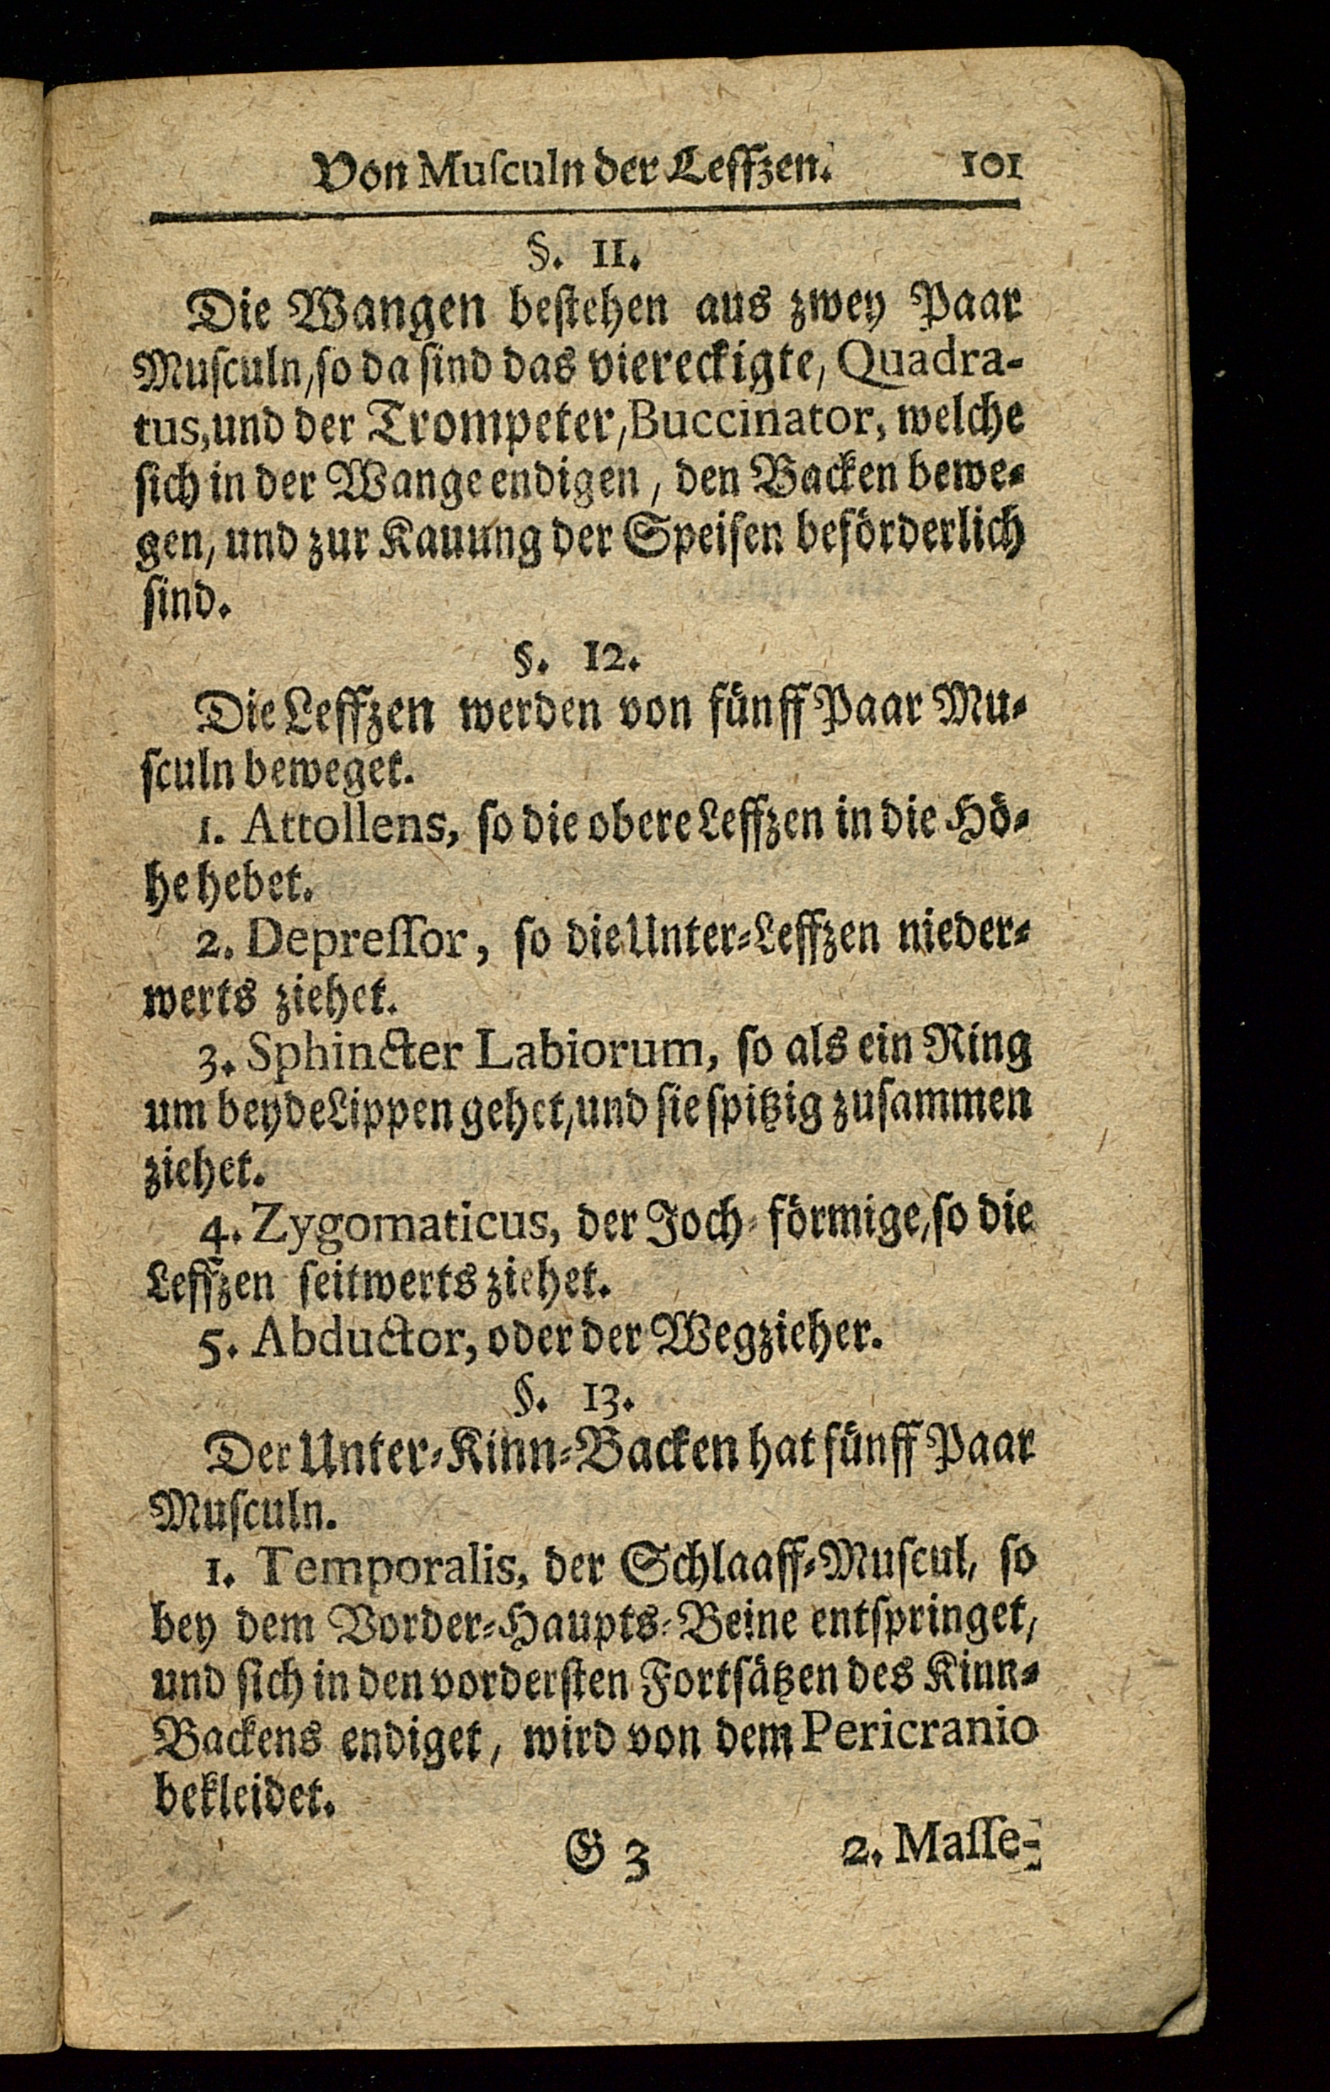 Von Muſculn der Leffzen. 101
§. 11.
Die Wangen beſtehen aus zwey Paar
Muſculn, ſo da ſind das viereckigte, Quadra-
tus, und der Trompeter, Buccinator, welche
ſich in der Wange endigen, den Backen bewe-
gen, und zur Kauung der Speiſen beförderlich
ſind.
§. 12.
Die Leffzen werden von fünff Paar Mu-
ſculn beweget.
1. Attollens, ſo die obere Leffzen in die Hö-
he hebet.
2. Depreſſor, ſo die Unter-Leffzen nieder-
werts ziehet.
3. Sphincter Labiorum, ſo als ein Ring
um beyde Lippen gehet, und ſie ſpitzig zuſammen
ziehet.
4. Zygomaticus, der Joch-förmige, ſo die
Leffzen ſeitwerts ziehet.
5. Abductor, oder der Wegzieher.
§. 13.
Der Unter-Kinn-Backen hat fünff Paar
Muſculn.
1. Temporalis, der Schlaaff-Muſcul, ſo
bey dem Vorder-Haupts-Beine entſpringet,
und ſich in den vorderſten Fortſätzen des Kinn-
Backens endiget, wird von dem Pericranio
bekleidet.
G 3 2. Maſſe-